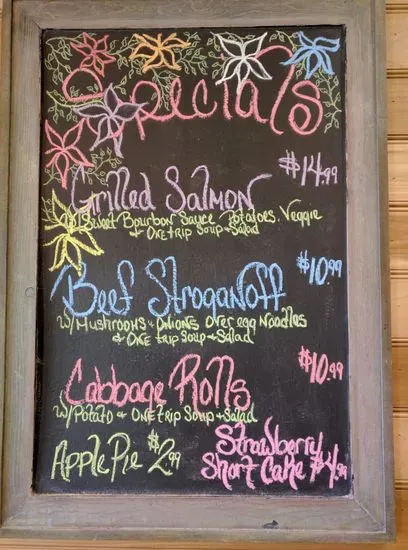 Specials
$14.99
Grilled Salmon
w/ Sweet Bourbon Sauce Potatoes, Veggie
& One trip Soup & Salad
$10.99
Beef Stroganoff
w/ Mushrooms & Onions over egg Noodles
& One trip Soup & Salad
$10.99
Cabbage Rolls
w/ Potato & One trip Soup & Salad
Apple Pie $2.99
Strawberry
Short Cake $4.99